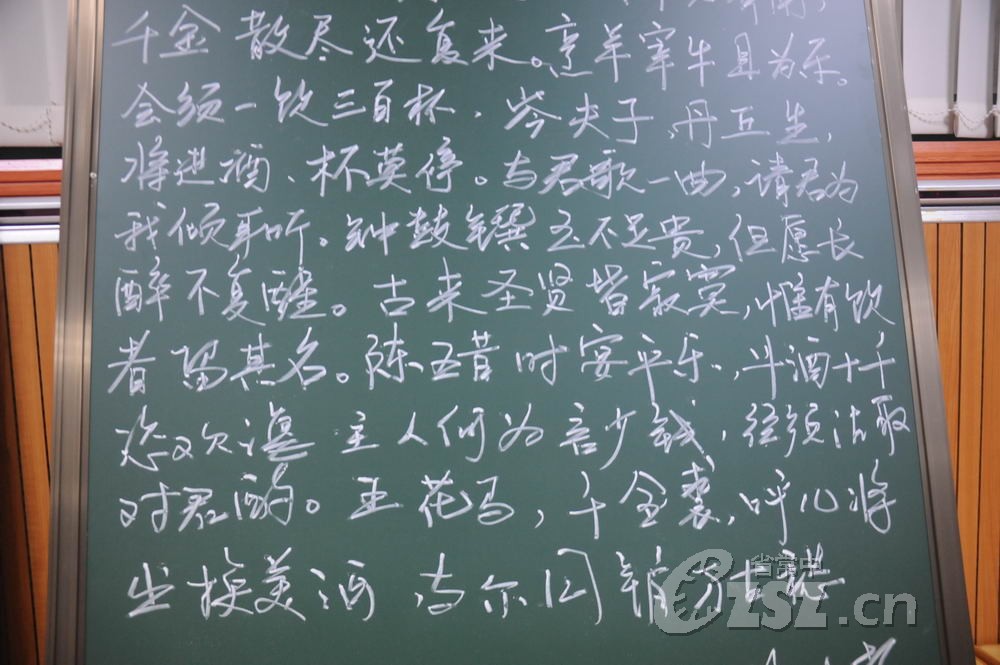 千金散尽还复来。烹羊宰牛且为乐。
会须一饮三百杯，岑夫子，丹丘生，
将进酒、杯莫停。与君歌一曲，请君为
我倾耳听。钟鼓馔玉不足贵，但愿长
醉不复醒。古来圣贤皆寂寞，惟有饮
者留其名。陈王昔时宴平乐，斗酒十千
恣欢谑 主人何为言少钱，径须沽取
对君酌。五花马，千金裘，呼儿将
出换美酒 与尔同销万古愁
省常中
CZSZ.cn